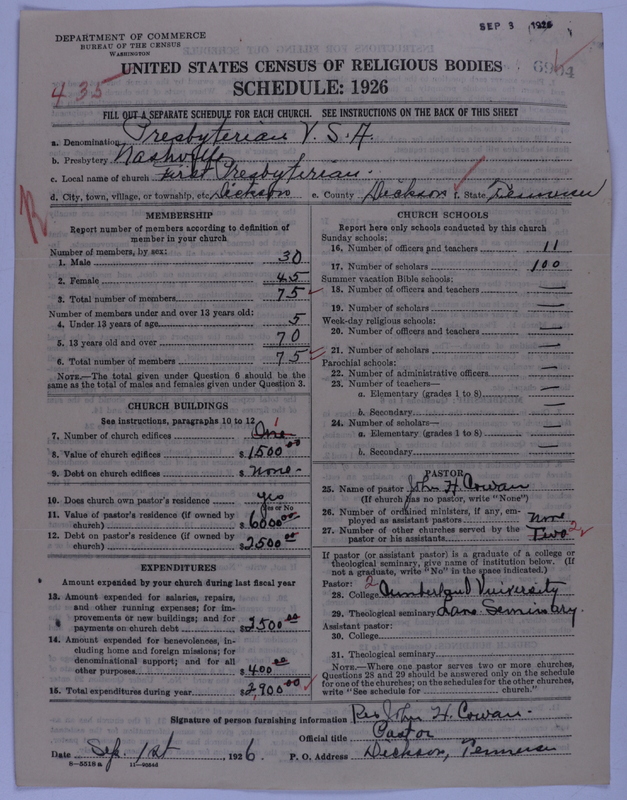 SEP 3 1926
DEPARTMENT OF COMMERCE
BUREAU OF THE CENSUS
WASHINGTON
UNITED STATES CENSUS OF RELIGIOUS BODIES
SCHEDULE: 1926
435
FILL OUT A SEPARATE SCHEDULE FOR EACH CHURCH. SEE INSTRUCTIONS ON THE BACK OF THIS SHEET
a. Denomination Presbyterian U. S. A.
b. Presbytery Nashville
c. Local name of church First Presbyterian.
d. City, town, village, or township, etc. Dickson e. County Dickson f. State Tennessee
MEMBERSHIP
Report number of members according to definition of
member in your church
Number of members, by sex:
1. Male 30
2. Female 45
3. Total number of members 75
Number of members under and over 13 years old:
4. Under 13 years of age 5
5. 13 years old and over 70
6. Total number of members 75
NOTE.—The total given under Question 6 should be
same as the total of males and females given under Question 3.
CHURCH BUILDINGS
See instructions, paragraphs 10 to 12
7. Number of church edifices One 1
8. Value of church edifices $1500.00
9. Debt on church edifices $ none-
10. Does church own pastor's residence yes
(Yes or No)
11. Value of pastor's residence (if owned by
church) $6000.00
12. Debt on pastor's residence (if owned by
church) $2500.00
EXPENDITURES
Amount expended by your church during last fiscal year
13. Amount expended for salaries, repairs,
and other running expenses; for im-
provements or new buildings; and for
payments on church debt $2500.00
14. Amount expended for benevolences, in-
cluding home and foreign missions; for
denominational support; and for all
other purposes $400.00
15. Total expenditures during year $2,900.00
CHURCH SCHOOLS
Report here only schools conducted by this church
Sunday schools:
16. Number of officers and teachers 11
17. Number of scholars 100
Summer vacation Bible schools:
18. Number of officers and teachers —
19. Number of scholars —
Week-day religious schools:
20. Number of officers and teachers —
21. Number of scholars —
Parochial schools:
22. Number of administrative officers —
23. Number of teachers—
a. Elementary (grades 1 to 8) —
b. Secondary —
24. Number of scholars—
a. Elementary (grades 1 to 8) —
b. Secondary —
PASTOR
25. Name of pastor John H. Cowan
(If church has no pastor, write "None")
26. Number of ordained ministers, if any, em-
ployed as assistant pastors none
27. Number of other churches served by the
pastor or his assistants Two 2
If pastor (or assistant pastor) is a graduate of a college or
theological seminary, give name of institution below. (If
not a graduate, write "No" in the space indicated.)
Pastor: 2
28. College Cumberland University
29. Theological seminary Lane Seminary.
Assistant pastor:
30. College
31. Theological seminary
NOTE.—Where one pastor serves two or more churches,
Questions 28 and 29 should be answered only on the schedule
for one of the churches; on the schedules for the other churches,
write "See schedule for church."
Signature of person furnishing information Rev John H. Cowan.
Official title Pastor
Date Sep. 1st 1926. P. O. Address Dickson, Tennessee
8-5518a